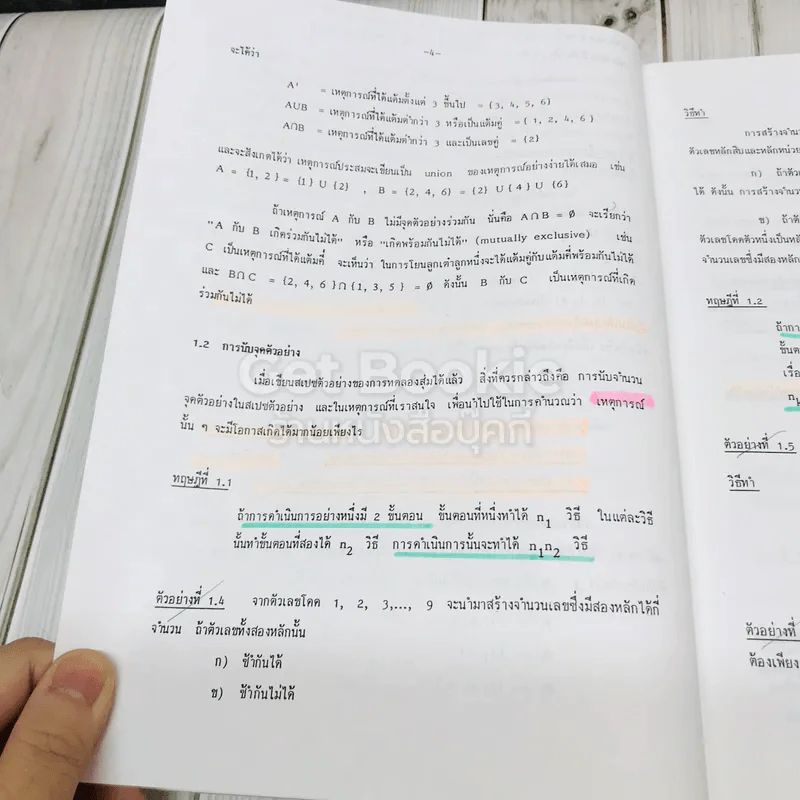 -4-
จะได้ว่า
A' = เหตุการณ์ที่ได้แต้มตั้งแต่ 3 ขึ้นไป = {3, 4, 5, 6}
AUB = เหตุการณ์ที่ได้แต้มต่ำกว่า 3 หรือเป็นแต้มคู่ = { 1, 2, 4, 6 }
A∩B = เหตุการณ์ที่ได้แต้มต่ำกว่า 3 และเป็นเลขคู่ = {2}
และจะสังเกตได้ว่า เหตุการณ์ประสมจะเขียนเป็น union ของเหตุการณ์อย่างง่ายได้เสมอ เช่น
A = {1, 2 } = {1} U {2} , B = {2, 4, 6} = {2} U { 4 } U {6}
ถ้าเหตุการณ์ A กับ B ไม่มีจุดตัวอย่างร่วมกัน นั่นคือ A∩B = ∅ จะเรียกว่า
"A กับ B เกิดร่วมกันไม่ได้" หรือ "เกิดพร้อมกันไม่ได้" (mutually exclusive) เช่น
C เป็นเหตุการณ์ที่ได้แต้มคี่ จะเห็นว่า ในการโยนลูกเต๋าลูกหนึ่งจะได้แต้มคู่กับแต้มคี่พร้อมกันไม่ได้
และ B∩C = {2, 4, 6 }∩{1, 3, 5 } = ∅ ดังนั้น B กับ C เป็นเหตุการณ์ที่เกิด
ร่วมกันไม่ได้
1.2 การนับจุดตัวอย่าง
เมื่อเขียนสเปซตัวอย่างของการทดลองสุ่มได้แล้ว สิ่งที่ควรกล่าวถึงคือ การนับจำนวน
จุดตัวอย่างในสเปซตัวอย่าง และในเหตุการณ์ที่เราสนใจ เพื่อนำไปใช้ในการคำนวณว่า เหตุการณ์
นั้น ๆ จะมีโอกาสเกิดได้มากน้อยเพียงไร
ทฤษฎีที่ 1.1
ถ้าการดำเนินการอย่างหนึ่งมี 2 ขั้นตอน ขั้นตอนที่หนึ่งทำได้ n1 วิธี ในแต่ละวิธี
นั้นทำขั้นตอนที่สองได้ n2 วิธี การดำเนินการนั้นจะทำได้ n1n2 วิธี
ตัวอย่างที่ 1.4 จากตัวเลขโดด 1, 2, 3,..., 9 จะนำมาสร้างจำนวนเลขซึ่งมีสองหลักได้กี่
จำนวน ถ้าตัวเลขทั้งสองหลักนั้น
ก) ซ้ำกันได้
ข) ซ้ำกันไม่ได้
Get Bookie
ร้านหนังสือบุ๊คกี้
วิธีทำ
การสร้างจำนว
ตัวเลขหลักสิบและหลักหน่วย
ก) ถ้าตัว
ได้ ดังนั้น การสร้างจำนว
ข) ถ้าตั
ตัวเลขโดดตัวหนึ่งเป็นหลั
จำนวนเลขซึ่งมีสองหลัก
ทฤษฎีที่ 1.2
ถ้าการ
ขั้นตอ
เรื่อ
ตัวอย่างที่ 1.5
วิธีทำ
ตัวอย่างที่
ต้องเพียง